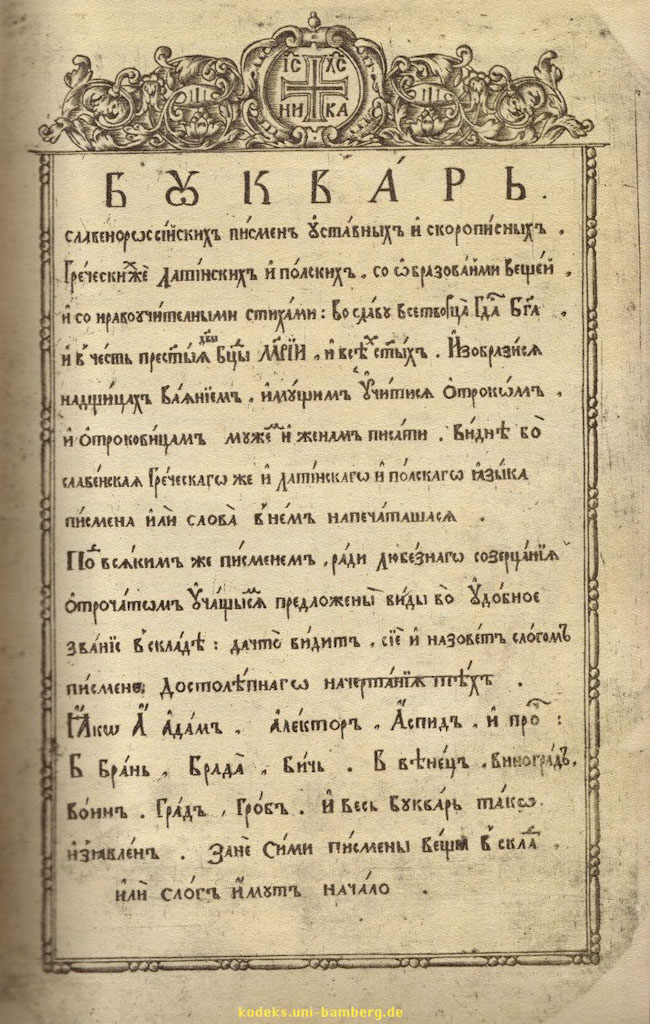 ІС ХС
НИ КА
БꙊКВА́РЬ.
славенорѡссі́йскихъ пи́сменъ ᲂу҆ста́вныхъ и҆ скоропи́сныхъ,
Гре́ческихже Лати́нскихъ и҆ по́лскихъ, со ѻ҆бразова́нїѧми веще́й,
и҆ со нравоучи́телными стиха́ми: во сла́ву всетво́рца Гд҇а Бг҃а,
и҆ в̾ че́сть прест҇ы́ѧ дв҃ы Бц҃ы МР҃І́И, и҆ всѣ́х ст҃ы́хъ. И҆зобрази́сѧ
на дщи́цахъ ваѧ́нїемъ, и҆му́щимъ ᲂу҆чи́тисѧ ѻ҆трокѡ́мъ,
и҆ ѻ҆трокови́цамъ муже́м и҆ жена́мъ писа́ти. Ви́днѣ бо̀
славе́нскаѧ Гре́ческагѡ же и҆ лати́нскагѡ и҆ по́лскагѡ ꙗ҆зы́ка
пи́смена и҆лѝ слова̀ в̾ не́мъ напеча́ташасѧ.
Под всѧ́кимъ же пи́сменемъ, ра́ди любе́знагѡ созерца́нїѧ
ѻ҆троча́тѡмъ ᲂу҆ча́щымсѧ предложены̀ ви́ды во ᲂу҆до́бное
зва́нїе в̾ скла́дѣ: да что̀ ви́дитъ, сїѐ и҆ назове́тъ сло́гомъ
пи́смене, достолѣ́пнагѡ начерта́нїѧ тѣ́хъ.
Ꙗ҆́кѡ А҆ А҆да́мъ, А҆ле́кторъ, А҆́спидъ, и҆ про҇:
Б Бра́нь, Брада̀, Би́чь. В вѣне́цъ, виногра́дъ,
во́инъ. Гра́дъ, Гро́бъ. и҆ весь Буква́рь та́кѡ
и҆з̾ѧвле́нъ. Занѐ си́ми пи́смены ве́щи в̾ скла́д,
и҆лѝ сло́гъ и҆́мутъ нача́ло.
kodeks.uni-bamberg.de